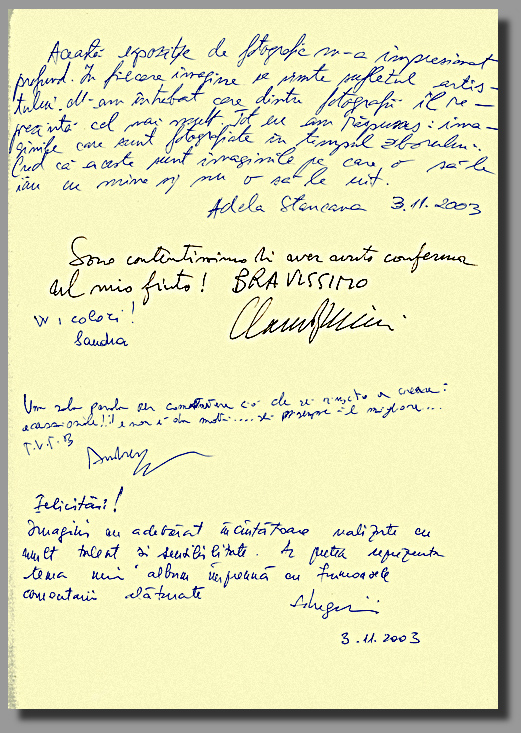 Această expoziție de fotografie m-a impresionat
profund. În fiecare imagine se simte sufletul artis-
tului. M-am întrebat care dintre fotografii îl re-
prezintă cel mai mult. Tot eu am răspuns: ima-
ginile care sunt fotografiate în timpul zborului.
Cred că aceste sunt imaginile pe care o să le
iau cu mine și nu o să le uit.
Adela Stancana 3.11.2003
Sono contentissimo di aver avuto conferma
al mio fiuto! BRAVISSIMO
W i colori!
Sandra
Una sola parola per commentare ciò che sei riuscito a creare:
eccezionale!!! e non è da molti.... sei sempre il migliore...
T.V.T.B
Andrea
Felicitări!
Imagini cu adevărat încântătoare realizate cu
mult talent și sensibilitate. Ar putea reprezenta
tema unui album împreună cu frumoasele
comentarii alăturate
3.11.2003